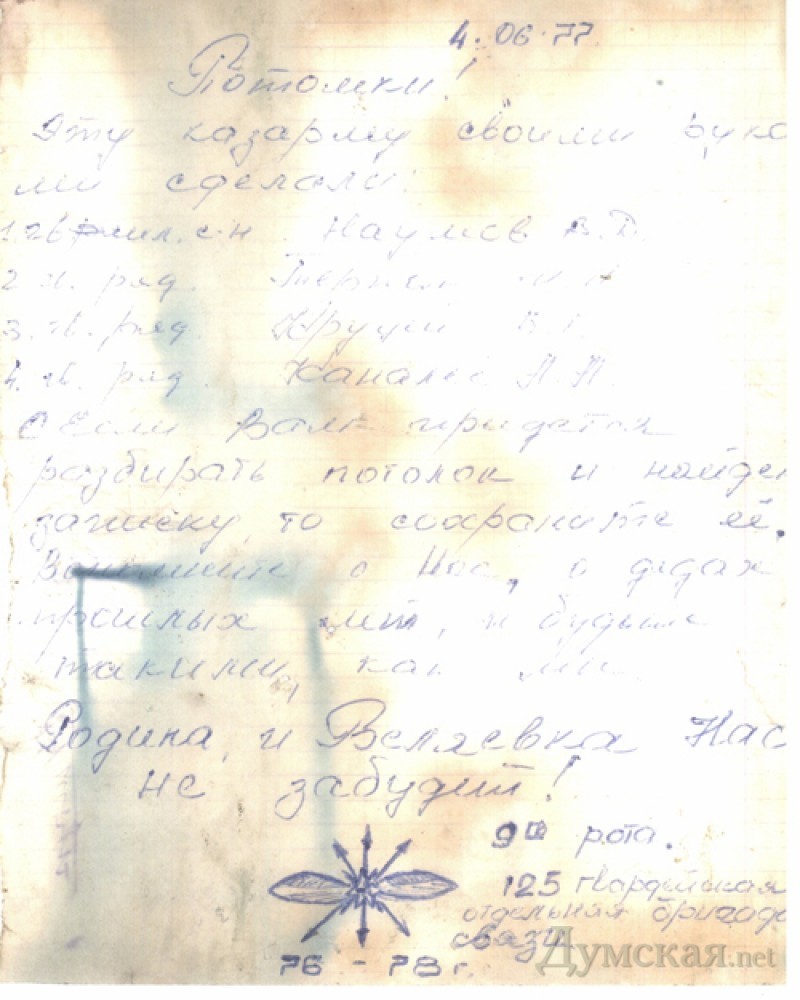 4.06.77
Потомки!
Эту казарму своими рука
ми сделали:
1. гв. мл. с-н Наумов В.Д.
2. гв. ряд.
3. гв. ряд. Круций
4. гв. ряд. Каналес П.П.
Если Вам придется
разбирать потолок и найде
записку, то сохраните её.
Вспомните о Нас, о дедах
прошлых лет, и будьте
такими, как мы.
Родина, и Беляевка Нас
не забудет!
9ая рота.
125 гвардейская
отдельная бригада
связи
76 - 78 г.
Думская.net